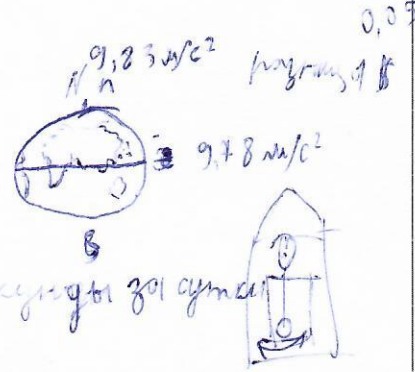 0,05
9,83 м/с² разница в
N п
9,78 м/с²
в
кунды за сутки